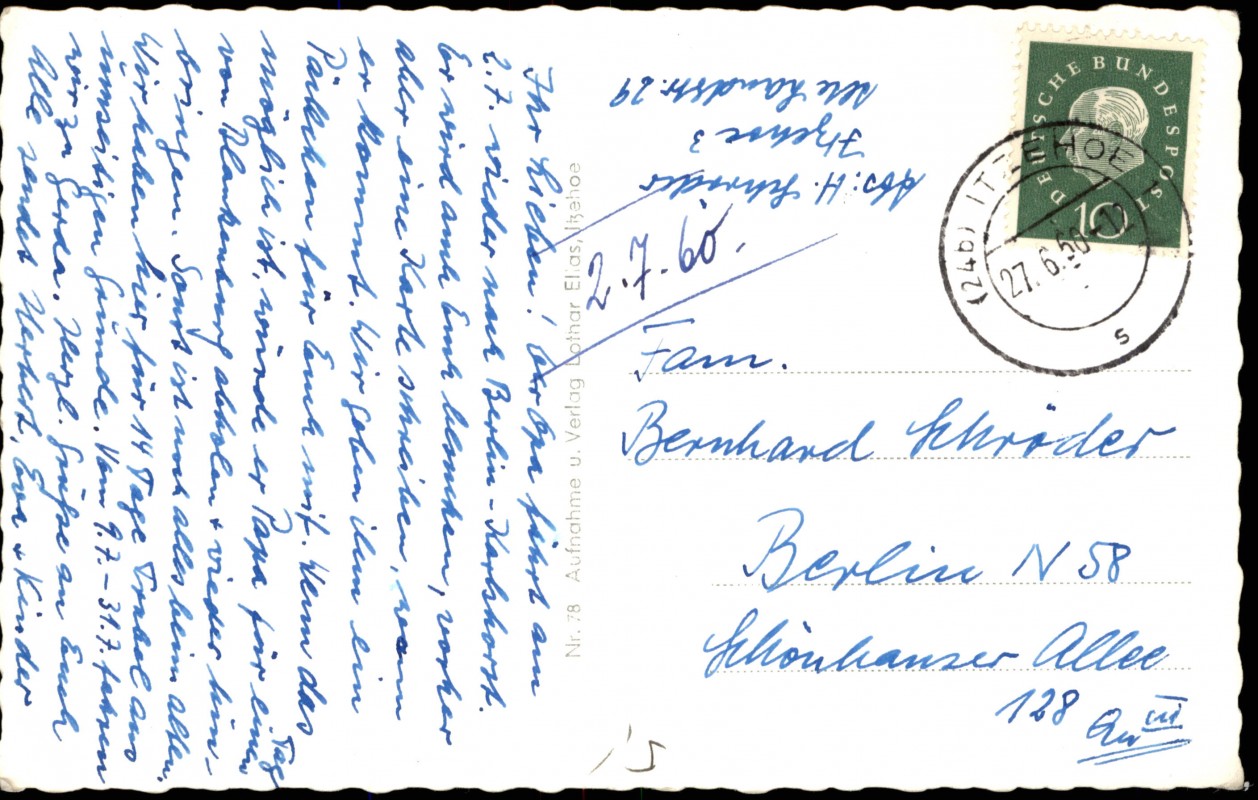 Ihr Lieben! Eur Opa fährt am
2.7. wieder nach Berlin-Karlshorst.
Er wird auch Euch besuchen, vorher
aber eine Karte schreiben, wann
er kommt. Wir geben ihm ein
Päckchen für Euch mit. Wenn das
möglich ist, würde er Papa für einen Tag
von Blankenburg abholen + wieder hin-
bringen. Sonst ist noch alles beim alten.
Wir haben hier für 14 Tage Trubel aus
umseitigen Gründe. Vom 9.7. – 31.7. fahren
wir zu Gerda. Herzl. Grüße an Euch
Alle sendet Herbert, Eva + Kinder
Nr. 78 Aufnahme u. Verlag Lothar Elias, Itzehoe
Abs: H. Schröder
Itzehoe 3
Alte Landstr. 29
2.7.60.
DEUTSCHE BUNDESPOST
10
(24b) ITZEHOE 1
27.6.60-12
s
Fam.
Bernhard Schröder
Berlin N 58
Schönhauser Allee
128
III